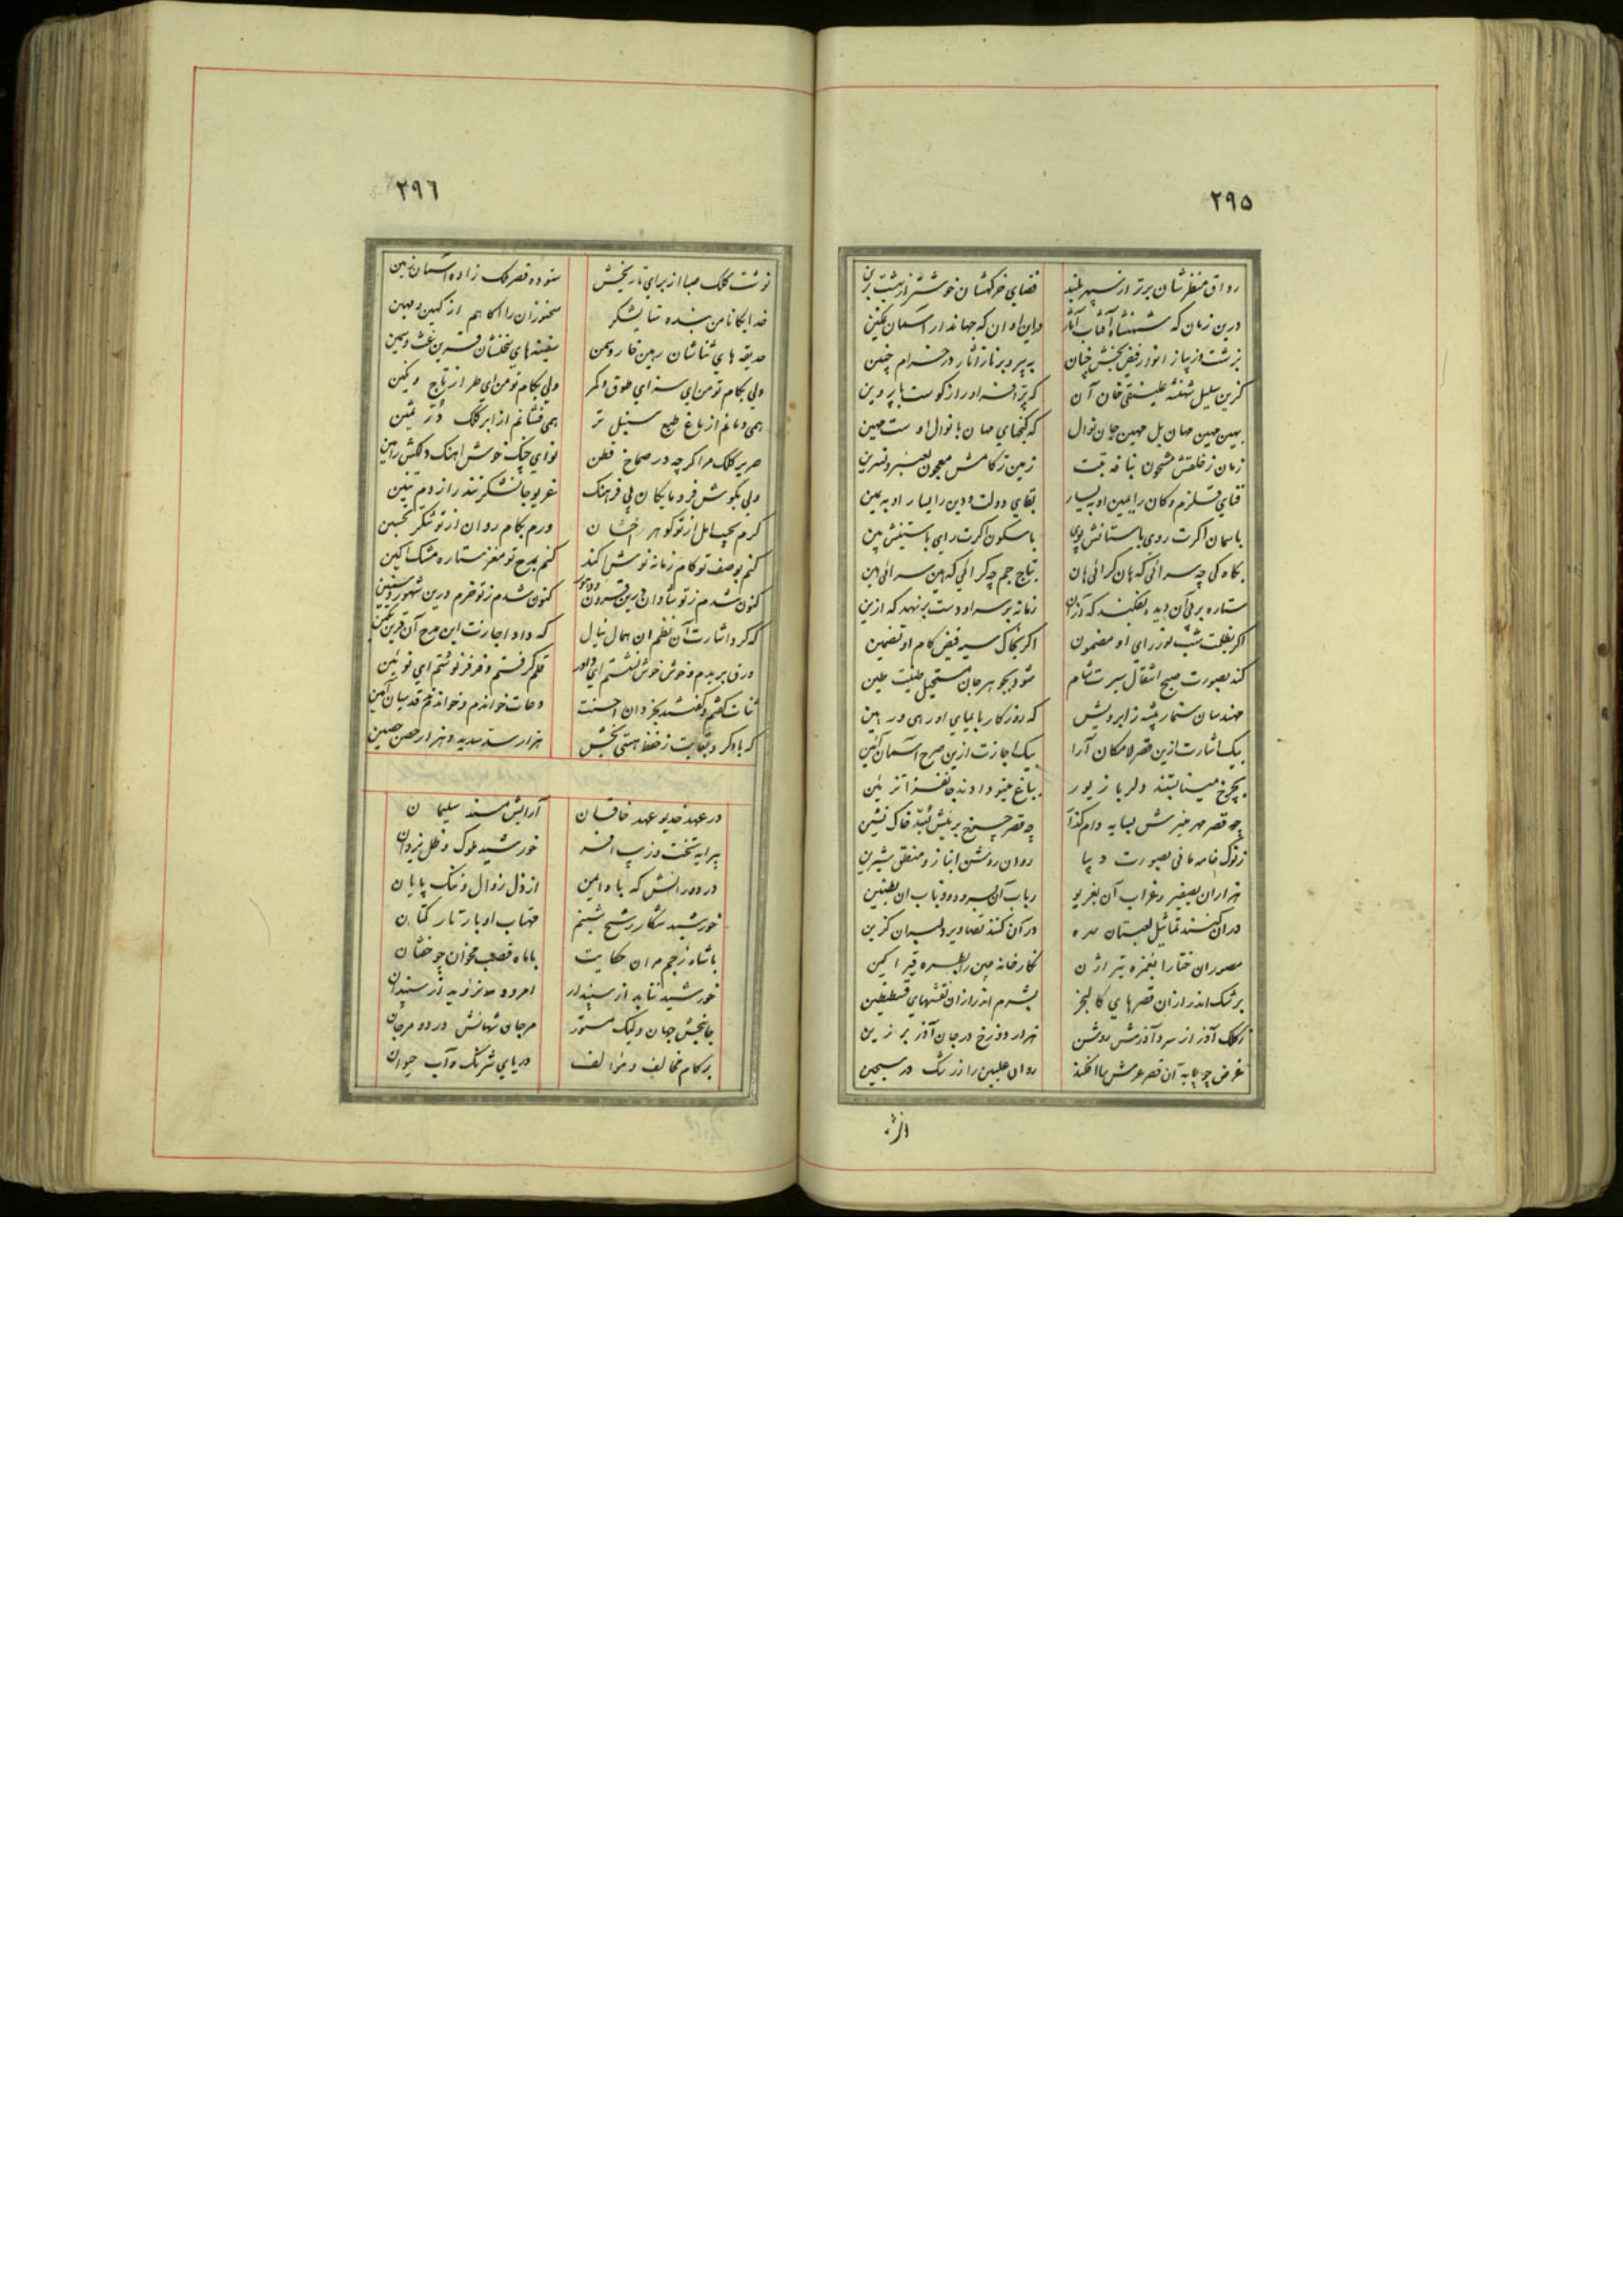 ۲۹۵
رواق منظرشان برتر از سپهر بلند فضای خرگهشان خوشتر از بهشت برین
درین زمان که شهنشاه آفتاب آثار درین اوان که جهاندار آسمان تمکین
گزین سلیل شهنشه علینقی خان آن
بهین مهین جهان بل مهین جهان نوال که گنجهای جهان با نوال اوست مهین
زمان ز خلقتش مشحون بنافه تبت زمین ز کامش معجون بعنبر و نسرین
فنای قلزم و کان را یمین او به یسار بقای دولت و دین را یسار او به یمین
باسمان اگرت روی باستانش پوی باسکون اگرت رای باستینش بین
بگاه کی چه سرائی که هان گرائی هان بتاج جم چه گرائی که هین سرائی هین
ستاره بر پی آن دیده بفکند که ازان زمانه بر سر او دست بر نهد که ازین
اگر بظلمت شب نور رای او مضمون اگر بخاک سیه فیض کام او تضمین
کند بصورت صبح انتقال سیرت شام شود بجوهر جان مستحیل طینت طین
مهندسان سنمار پیشه ز ابرویش که روزگار بایمای او رهی و رهین
بیک اشارت ازین قصر لامکان آرا بیک اجازت ازین صرح آسمان آئین
بچرخ مینا بستند دلربا زیور بباغ مینو دادند جانفزا تزئین
ز نوک خامه مانی بصورت دیبا روان روشن انباز و منطق شیرین
هزاران بصفیر و غراب آن بغریو رباب آن بسرود و ذباب ان بطنین
دران کنند تماثیل لعبتان سره در آن کنند تصاویر دلبران گزین
مصوران ختا را بغمزه تیر اژن نگارخانه چین را بطره قیر اگین
برشک اندر ازان قصرهای کالنجر بشرم اندر ازان نقشهای قسطنطین
ز کلک آذر از سرد آذرش روشن هزار دوزخ در جان آذر برزین
غرض چو سایه آن قصر عرش سا افکند روان علیین را ز رشک در سجین
۲۹۶
نوشت کلک صبا از برای تاریخش ستوده قصر ملک زاده آسمان زمین
خدایگانا من بنده ستایشگر سخنوران را آگاهم از کهین و مهین
حدیقه های ثناشان رهین خار و سمن سفینه های سخنشان قرین غث و سمین
ولی بکام تو من ای سزای طوق و کمر ولی بکام تو من ای طراز تاج و نگین
همی دمانم از باغ طبع سنبل تر همی فشانم از ابر کلک در ثمین
صریر کلک مرا گرچه در صماخ فطن نوای چنگ خوش اهنگ دلکش رامین
ولی بگوش فرومایگان بی فرهنگ غریو جانشکر تندر از دم تنین
گرم بجیب امل از تو گوهر اخشان ورم بکام روان از تو شکر تحسین
کنم بوصف تو کام زمانه نوش اکند کنم بمدح تو مغز ستاره مشک اگین
کنون شدم ز تو شادان درین قرون و دهور کنون شدم ز تو خرم درین شهور و سنین
که کرد اشارت آن نظم ان همال نیال که داد اجازت این مدح آن قرین تکین
ورق بریدم و خوش خوش نشستم ای داور قلم گرفتم و فرفر نوشتم ای نوئین
ثنات گفتم و گفتند بخردان احسنت دعات خواندم و خواندند قدسیان آمین
که باد گرد بقایت ز حفظ هستی بخش هزار سد سدید و هزار حصن حصین
در عهد خدیو عهد خاقان آرایش مسند سلیمان
پیرایه تخت و زیب افسر خورشید ملوک و ظل یزدان
در دورانش که باد ایمن از ذل زوال و ننگ پایان
خورشید شکار رشح شبنم مهتاب او بار تار کتان
باشاه ز جم مران حکایت باماه قصب مخوان چو خفتان
خورشید نتابد از سپندار امرود
جانبخش جهان ولیک مستور مرجان شهانش در دو مرجان
بر کام مخالف و موالف دریای شرنگ و آب حیوان